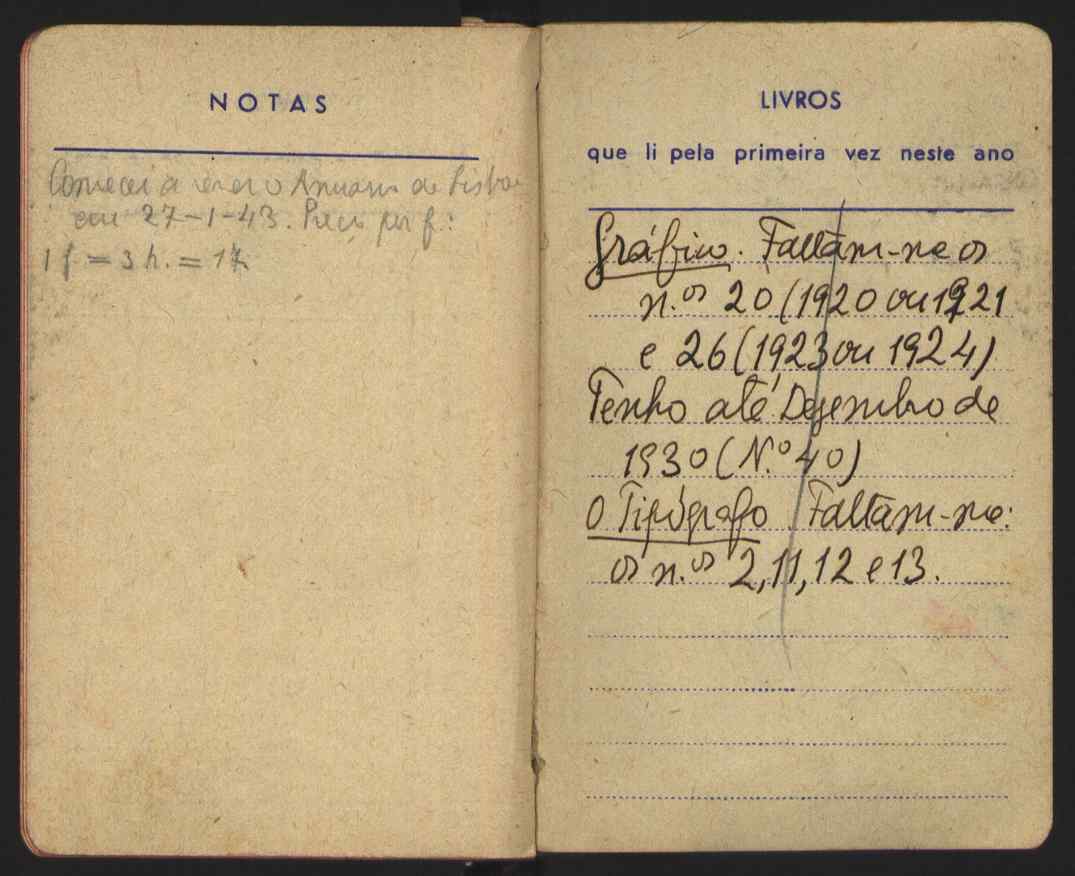 NOTAS
Comecei a rever o Anuario de Lisboa
em 27-1-43. Preço por f:
1 f = 3 h. = 17
LIVROS
que li pela primeira vez neste ano
Gráfico. Faltam-me os
n.os 20 (1920 ou 1921
e 26 (1923 ou 1924)
Tenho até Dezembro de
1930 (N.º 40)
O Tipógrafo Faltam-me:
os n.os 2, 11, 12 e 13.